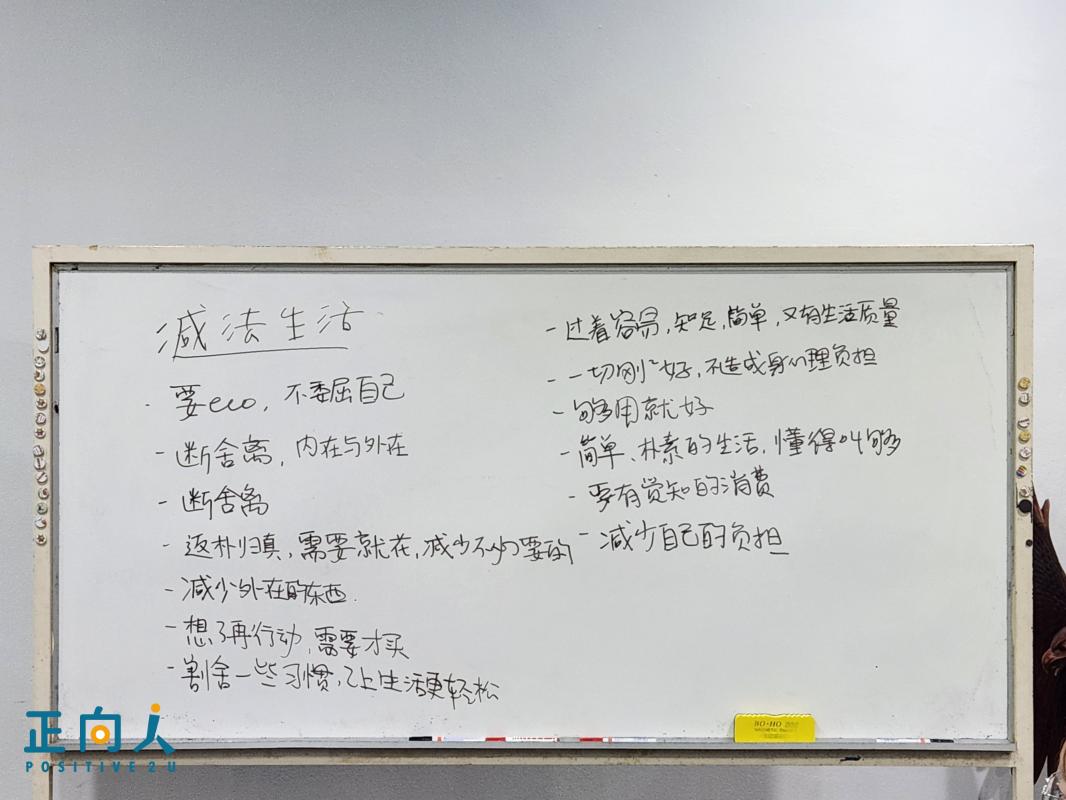 减法生活
· 要eco, 不委屈自己
- 断舍离, 内在与外在
- 断舍离
- 返朴归真, 需要就花, 减少不必要的
- 减少外在的东西.
- 想了再行动, 需要才买
- 割舍一些习惯, 让生活更轻松
- 过着容易, 知足, 简单, 又有生活质量
- 一切刚刚好, 不造成身心理负担
- 够用就好
- 简单、朴素的生活, 懂得叫够
- 要有觉知的消费
- 减少自己的负担
BO·HO
正向人
POSITIVE2U